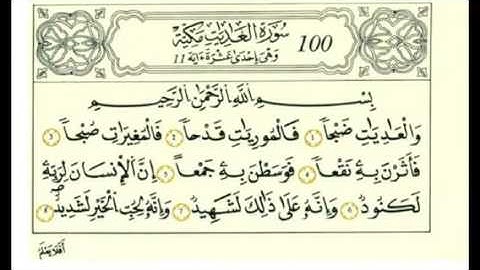 سُورَةُ الْعَادِيَاتِ مَكِّيَّة 100
وَهِيَ إِحْدَى عَشْرَةَ ءَايَة 11
بِسْمِ اللَّهِ الرَّحْمَٰنِ الرَّحِيمِ
وَالْعَادِيَاتِ ضَبْحاً ١ فَالْمُورِيَاتِ قَدْحاً ٢ فَالْمُغِيرَاتِ صُبْحاً ٣
فَأَثَرْنَ بِهِ نَقْعاً ٤ فَوَسَطْنَ بِهِ جَمْعاً ٥ إِنَّ الْإِنسَانَ لِرَبِّهِ
لَكَنُودٌ ٦ وَإِنَّهُ عَلَىٰ ذَٰلِكَ لَشَهِيدٌ ٧ وَإِنَّهُ لِحُبِّ الْخَيْرِ لَشَدِيدٌ ٨
أَفَلَا يَعْلَمُ